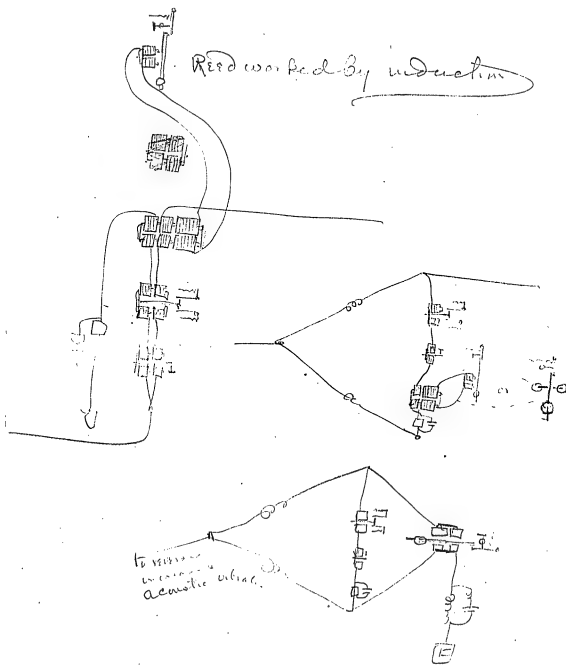 Reed worked by induction
or
to
acoustic vibrat.
E